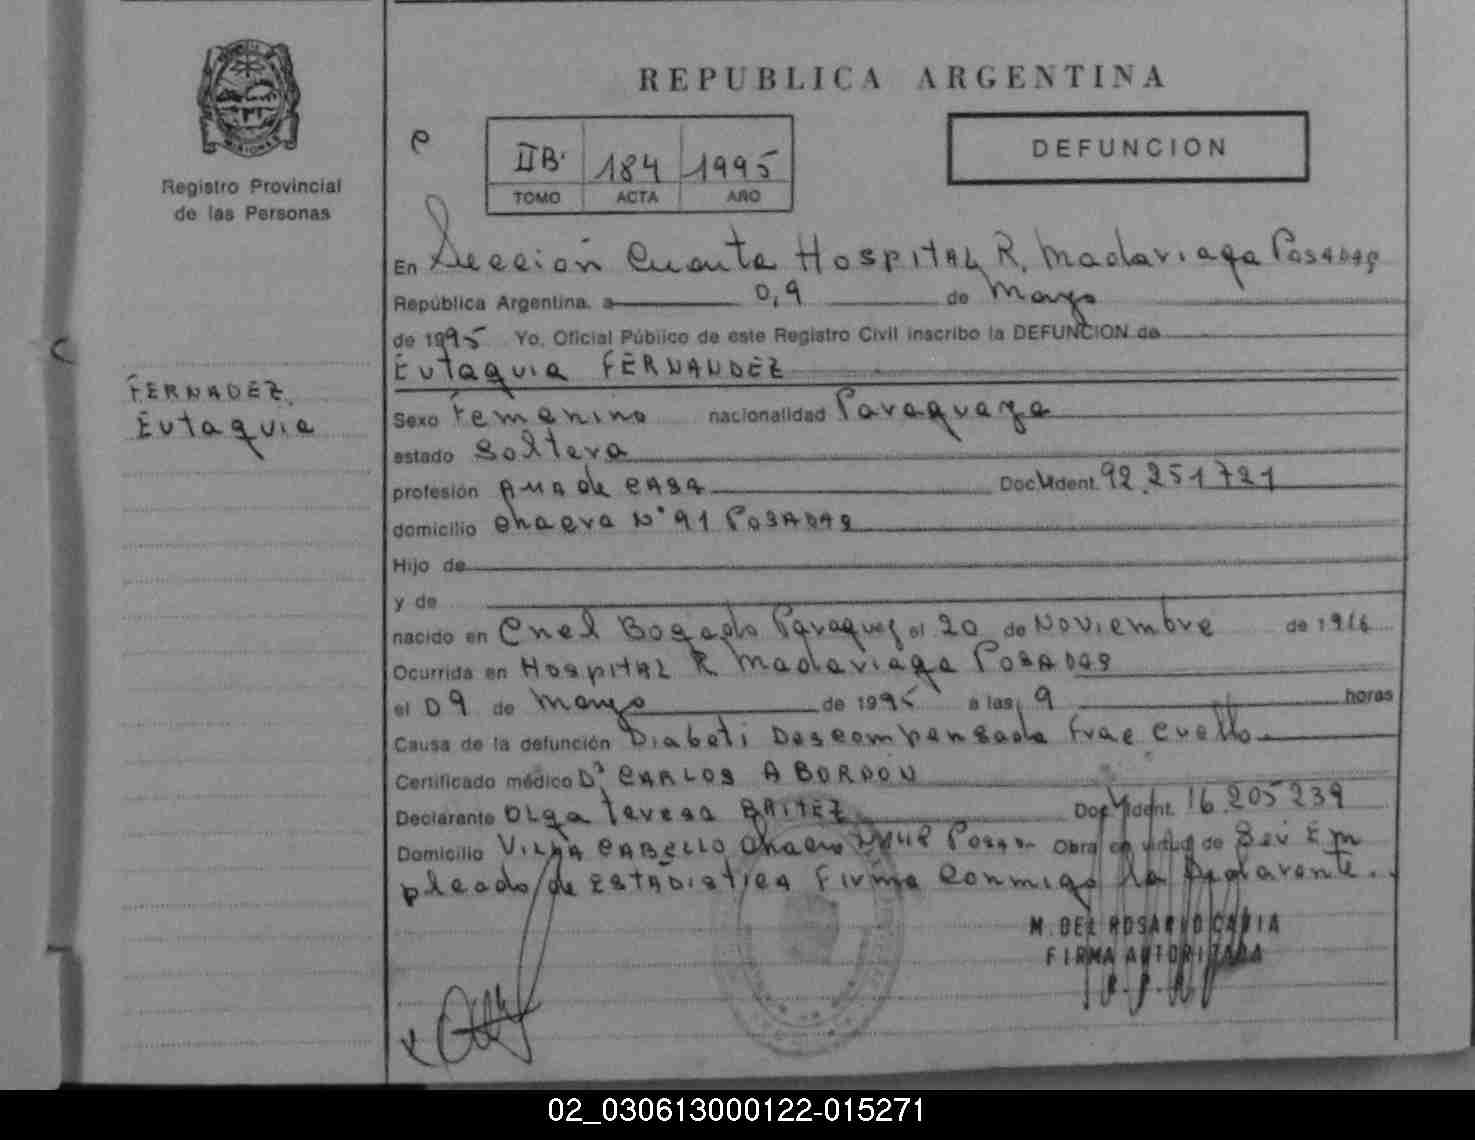 REPUBLICA ARGENTINA
DEFUNCION
IIB. 184 1995
TOMO ACTA AÑO
Registro Provincial
de las Personas
En Sección Cuarta Hospital R. Madariaga Posadas
República Argentina, a 0,9 de Mayo
de 1995 Yo, Oficial Público de este Registro Civil inscribo la DEFUNCION de
Eutaquia FERNANDEZ
FERNADEZ
Eutaquia
Sexo Femenino nacionalidad Paraguaya
estado Soltera
profesión Ama de casa Doc. Ident. 92.251721
domicilio chacra N° 91 Posadas
Hijo de
y de
nacido en Cnel Bogado Paraguay el 20 de Noviembre de 1916
Ocurrida en Hospital R Madariaga Posadas
el 09 de Mayo de 1995 a las 9 horas
Causa de la defunción Diabeti Descompensada Frac Cuello
Certificado médico Dr CARLOS A BORDON
Declarante Olga Teresa BRITEZ Doc. Ident. 16.205239
Domicilio Villa CABELLO chacra Posad Obra en virtud de Ser Em
pleado de ESTADISTICA Firma conmigo la Declarante.
M. DEL ROSARIO
FIRMA AUTORIZADA
02_030613000122-015271